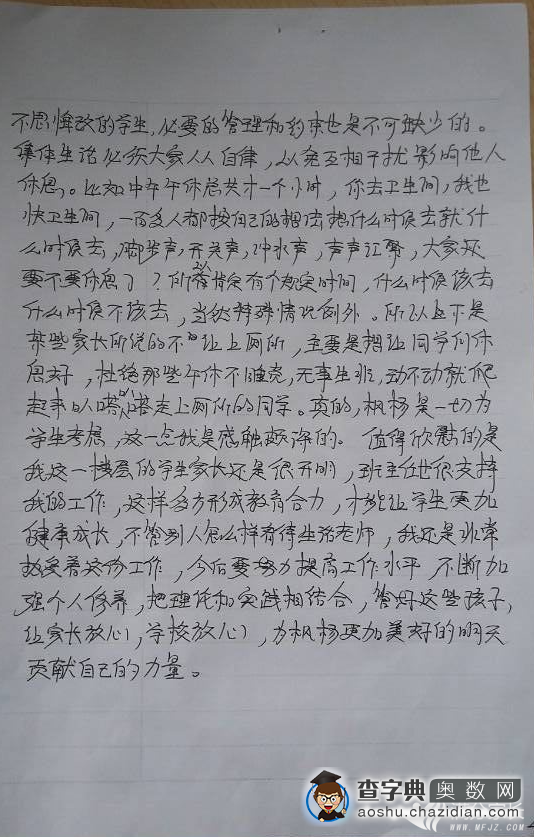 不思悔改的学生,必要的管理和约束也是不可缺少的。
集体生活必须大家人人自律,以免互相干扰影响他人
休息。比如中午午休总共才一个小时,你去卫生间,我也
快卫生间,一百多人都按自己的想法想什么时侯去就什
么时侯去,脚步声,开关声,冲水声,声声汇聚,大家还
要不要休息了?所以肯定有个规定时间,什么时侯该去
什么时侯不该去,当然特殊情况例外。所以也不是
某些家长所说的不让上厕所,主要是想让同学们休
息好,杜绝那些午休不睡觉,无事生非,动不动就爬
起来叭嗒叭嗒走上厕所的同学。真的,枫杨是一切为
学生考虑,这一点我是感触颇深的。值得欣慰的是
我这一楼层的学生家长还是很开明,班主任也很支持
我的工作,这样多方形成教育合力,才能让学生更加
健康成长,不管别人怎么样看待生活老师,我还是非常
热爱着这份工作,今后要努力提高工作水平,不断加
强个人修养,把理论和实践相结合,管好这些孩子,
让家长放心,学校放心,为枫杨更加美好的明天
贡献自己的力量。
查字典 奥数网
aoshu.chazidian.com
www.MFJZ.com